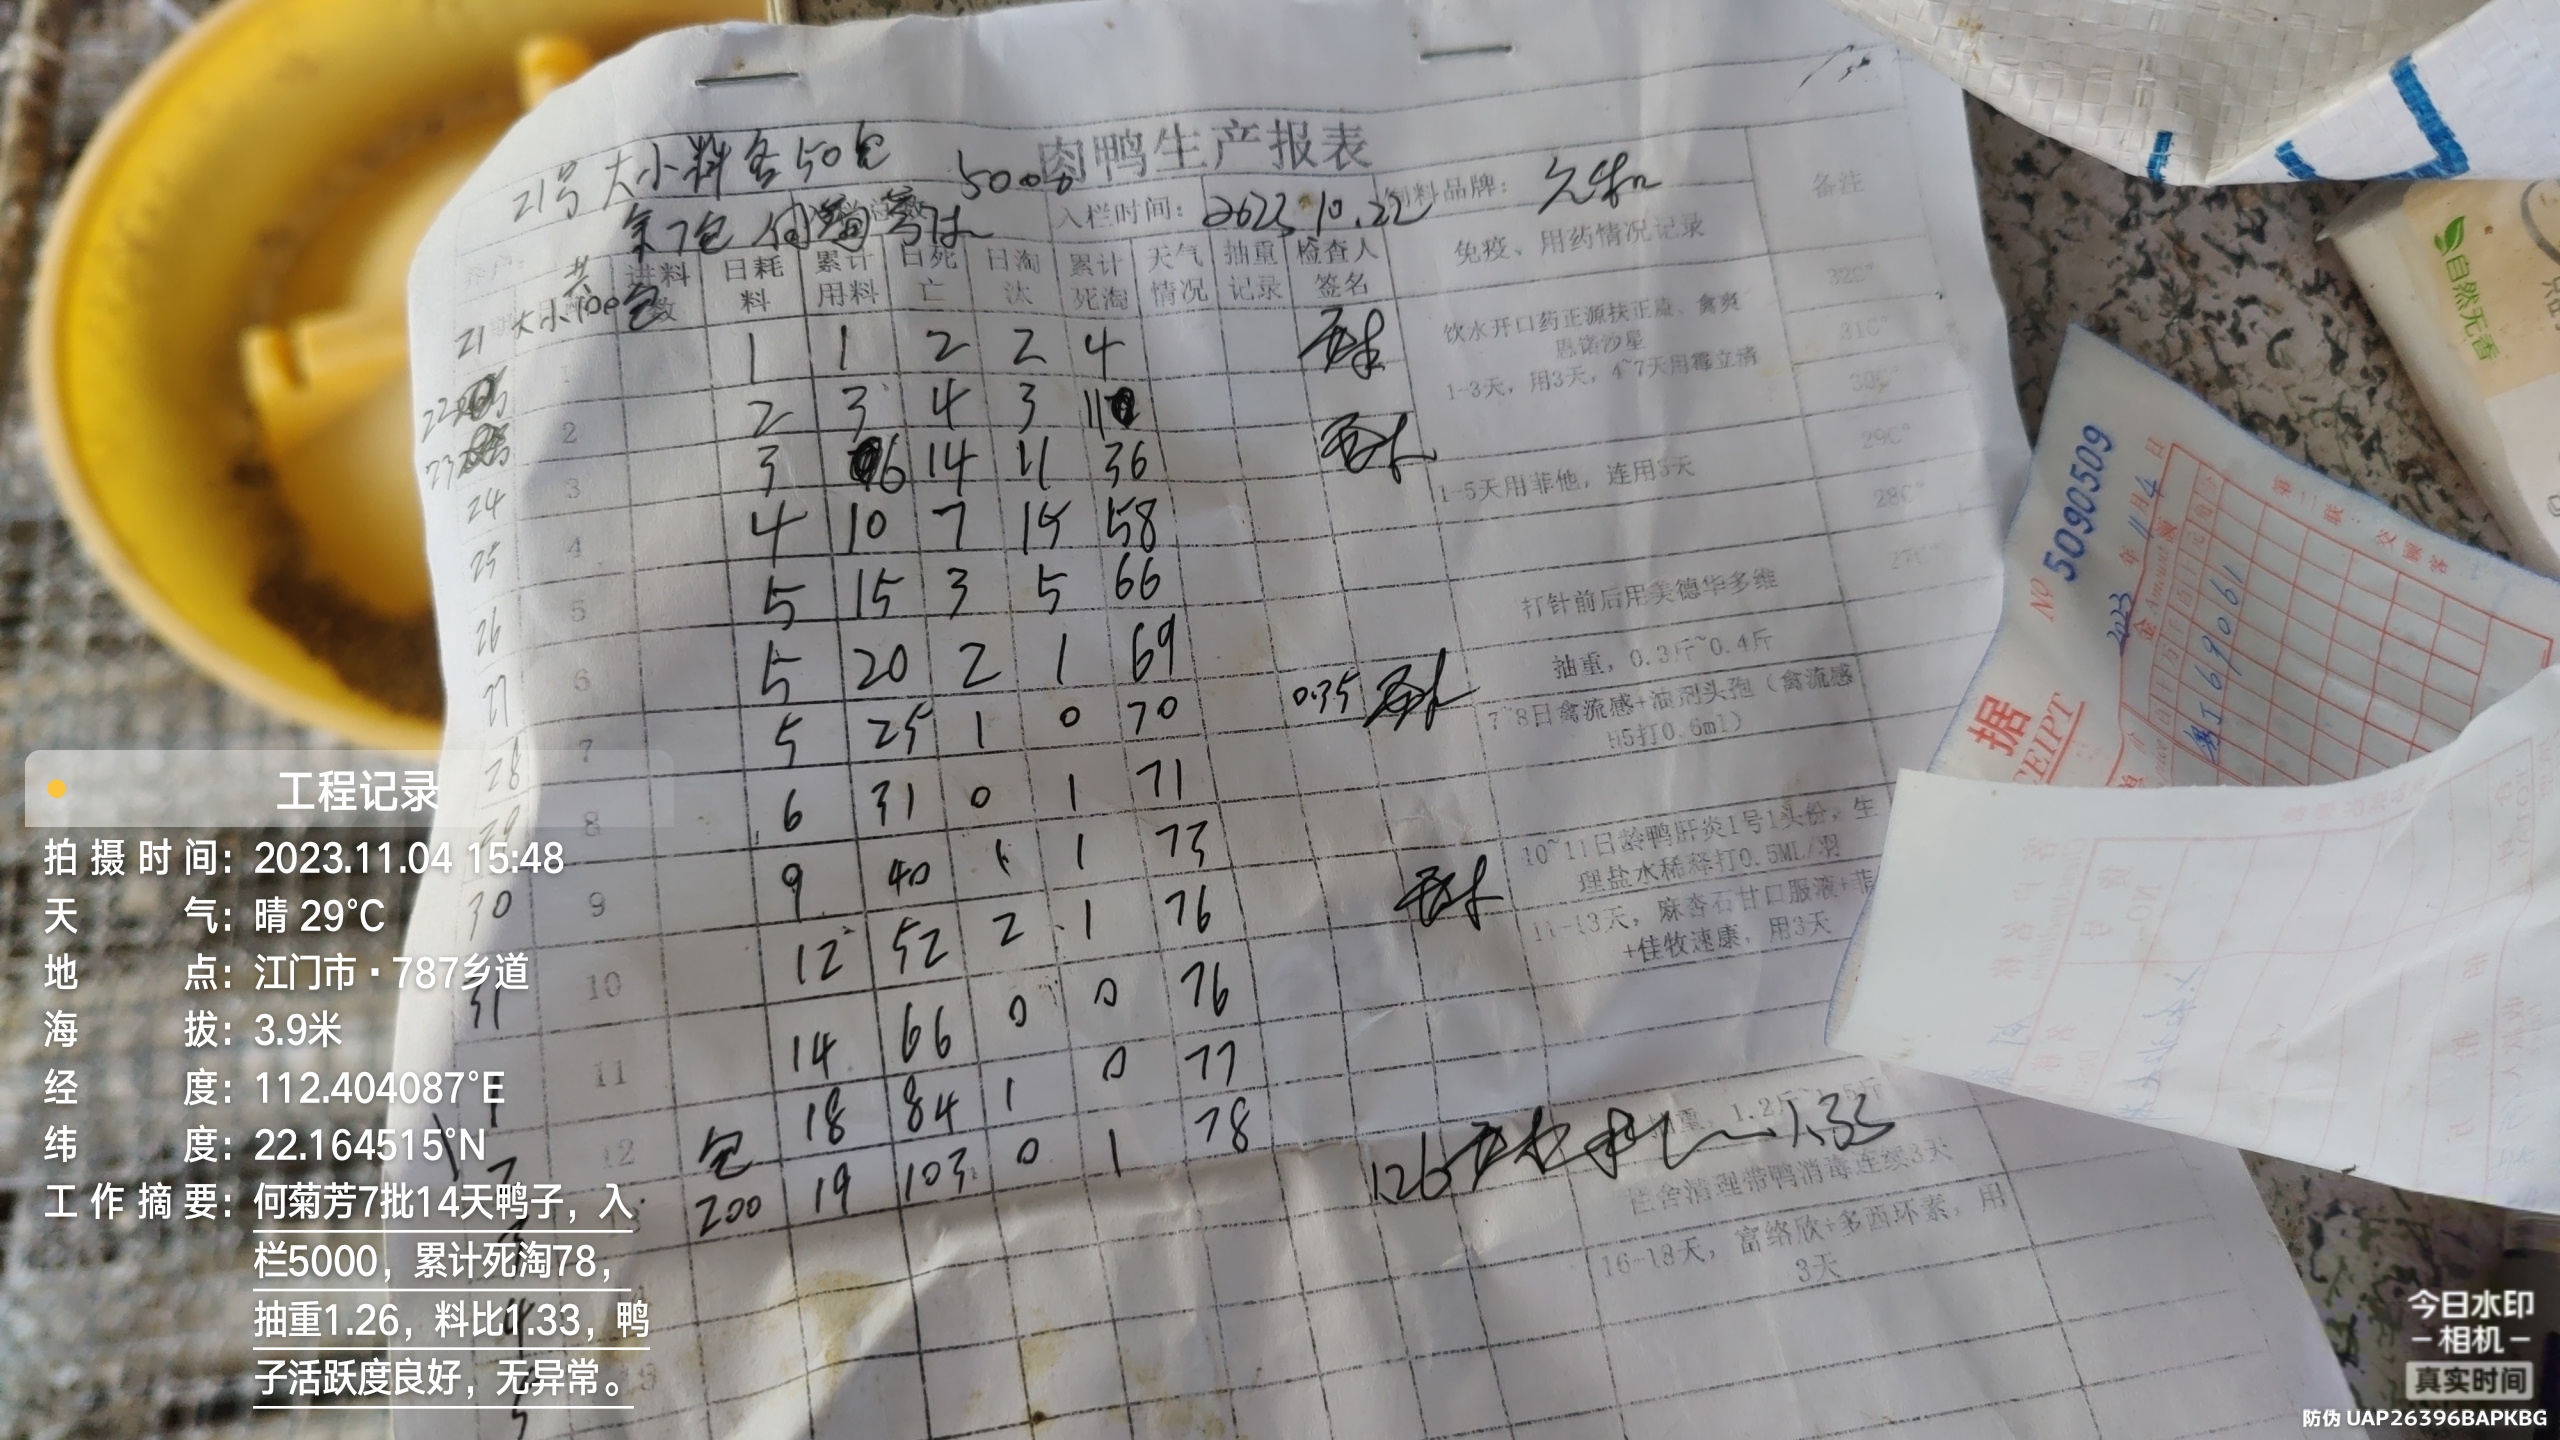 肉鸭生产报表
21号大小料各50包
余7包
5000
入栏时间：2023.10.22
饲料品牌：
备注
共
大小100包
进料数
日耗料
累计用料
日死亡
日淘汰
累计死淘
天气情况
抽重记录
检查人签名
免疫、用药情况记录
21 1 1 1 2 2 4
饮水开口药正源扶正嬴、禽爽
恩诺沙星
1-3天，用3天，4~7天用霉立清
32C°
31C°
30C°
22 2 2 3 4 3 11
23 3 3 6 14 11 36
1-5天用菲他，连用5天
29C°
24 4 4 10 7 15 58
28C°
25 5 5 15 3 5 66
打针前后用美德华多维
27C°
26 6 5 20 2 1 69
抽重，0.3斤~0.4斤
27 7 5 25 1 0 70 0.35
7~8日禽流感+油剂头孢（禽流感
H5打0.6ml）
28 8 6 31 0 1 71
29 9 9 40 1 1 73
10~11日龄鸭肝炎1号1头份，生
理盐水稀释打0.5ML/羽
30 10 12 52 2 1 76
11-13天，麻杏石甘口服液+菲
+佳牧速康，用3天
31 11 14 66 0 0 76
1 12 18 84 1 0 77
抽重，1.2斤~1.5斤
2 13 包200 19 103 0 1 78
1.26 料比 1.33
栏舍清理带鸭消毒连续3天
16-18天，富络欣+多西环素，用
3天
3
4
5
自然无香
№ 5090509
2023年11月4日
金 Amount 额
第二联：交顾客
粤J69061
据
RECEIPT
工程记录
拍摄时间：2023.11.04 15:48
天气：晴 29°C
地点：江门市·787乡道
海拔：3.9米
经度：112.404087°E
纬度：22.164515°N
工作摘要：何菊芳7批14天鸭子，入
栏5000，累计死淘78，
抽重1.26，料比1.33，鸭
子活跃度良好，无异常。
今日水印
相机
真实时间
防伪 UAP26396BAPKBG